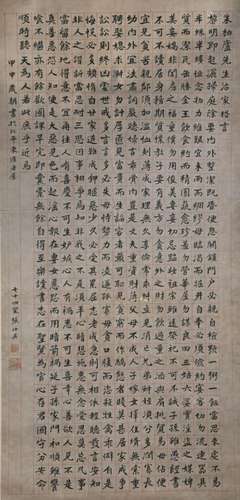 朱柏廬先生治家格言
黎明即起灑掃庭除要內外整潔既昏便息關鎖門戶必親自檢點一粥一飯當思來處不易
半絲半縷恆念物力維艱宜未雨而綢繆毋臨渴而掘井自奉必須儉約宴客切勿流連器具
質而潔瓦缶勝金玉飲食約而精園蔬愈珍饈勿營華屋勿謀良田三姑六婆實淫盜之媒婢
美妾嬌非閨房之福童僕勿用俊美妻妾切忌豔妝祖宗雖遠祭祀不可不誠子孫雖愚經書
不可不讀居身務期質樸教子要有義方勿貪意外之財勿飲過量之酒與肩挑貿易毋佔便
宜見貧苦親鄰須加溫恤刻薄成家理無久享倫常乖舛立見消亡兄弟叔姪須分多潤寡長
幼內外宜法肅辭嚴聽婦言乖骨肉豈是丈夫重資財薄父母不成人子嫁女擇佳婿毋索重
聘娶媳求淑女勿計厚奩見富貴而生諂容者最可恥遇貧窮而作驕態者賤莫甚居家戒爭
訟訟則終凶處世戒多言言多必失勿恃勢力而凌逼孤寡毋貪口腹而恣殺生禽乖僻自是
悔誤必多頹惰自甘家道難成狎暱惡少久必受其累屈志老成急則可相依輕聽發言安知
非人之譖訴當忍耐三思因事相爭焉知非我之不是須平心暗想施惠勿念受恩莫忘凡事
當留餘地得意不宜再往人有喜慶不可生妒忌心人有禍患不可生喜幸心善欲人見不是
真善惡恐人知便是大惡見色而起淫心報在妻女匿怨而用暗箭禍延子孫家門和順雖饔
飧不繼亦有餘歡國課早完即囊橐無餘自得至樂讀書志在聖賢為官心存君國守分安命
順時聽天為人若此庶乎近焉
甲申歲朝書於北
七十四叟張